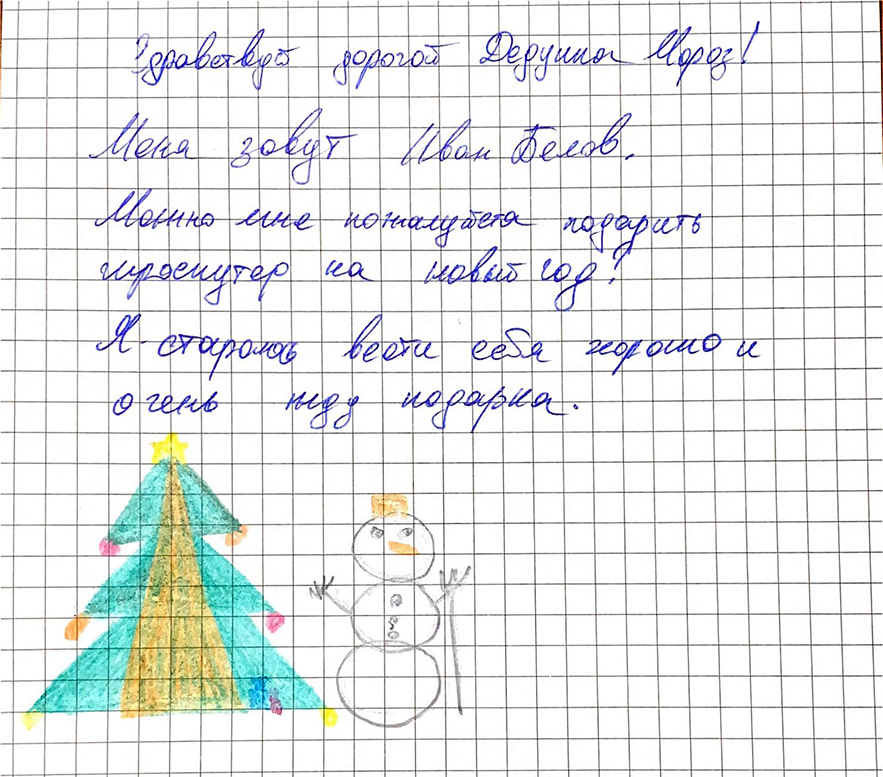 Здравствуй дорогой Дедушка Мороз!
Меня зовут Иван Белов.
Можно мне пожалуйста подарить
гироскутер на новый год?
Я стараюсь вести себя хорошо и
очень жду подарка.